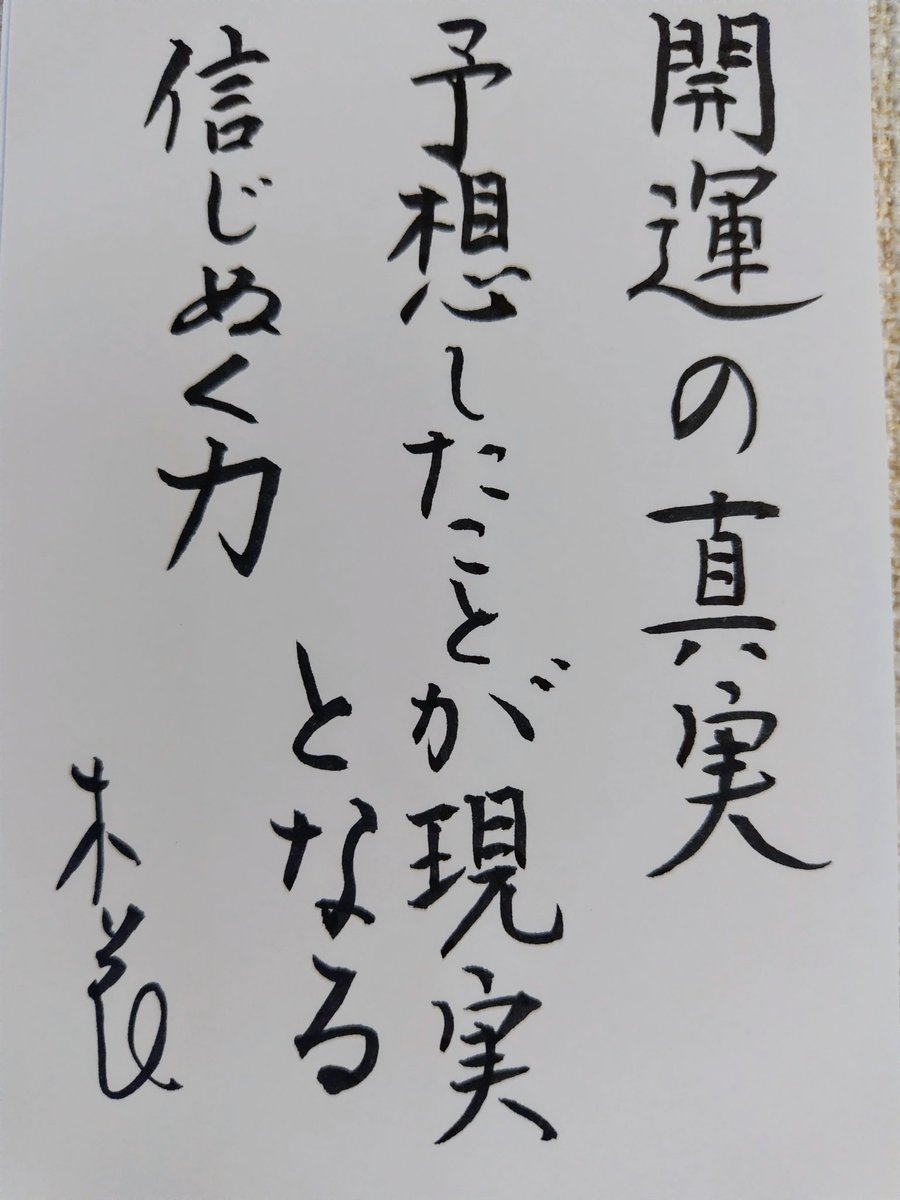 開運の真実
予想したことが現実
となる
信じぬく力